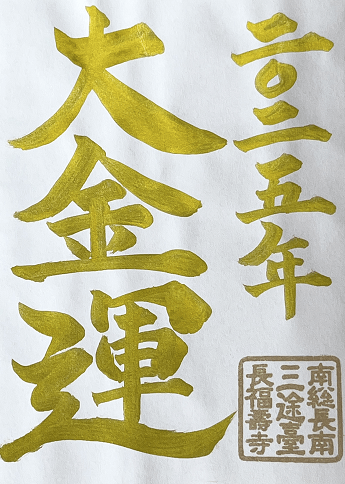 二〇二五年
大金運
南総長南
三途臺
長福壽寺